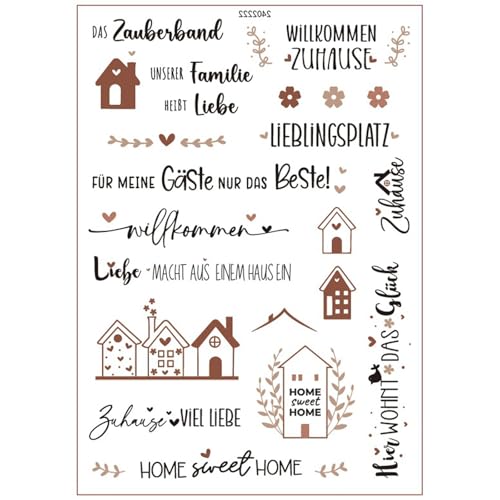 240522
DAS Zauberband
UNSERER Familie
HEIßT Liebe
WILLKOMMEN
ZUHAUSE
LIEBLINGSPLATZ
FÜR MEINE Gäste NUR DAS Beste!
Zuhause
willkommen
Liebe MACHT AUS EINEM HAUS EIN
Hier WOHNT DAS Glück
HOME
sweet
HOME
Zuhause VIEL LIEBE
HOME sweet HOME